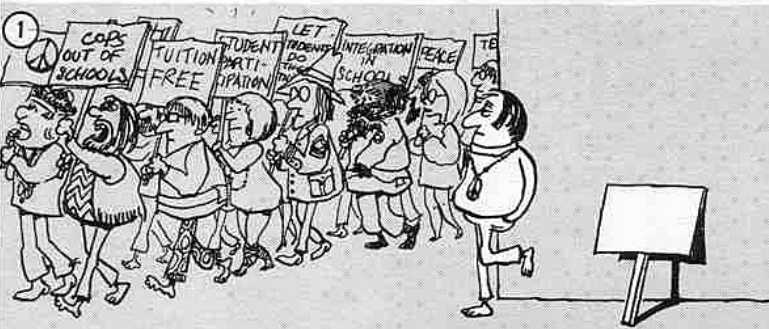 1
COPS
OUT OF
SCHOOLS
TUITION
FREE
STUDENT
PARTI-
CIPATION
LET
STUDENTS
DO
INTEGRATION
IN
SCHOOLS
PEACE
TE